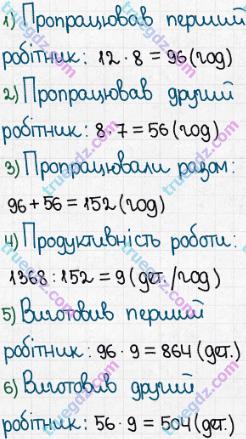 1) Пропрацював перший
робітник: 12 · 8 = 96 (год)
2) Пропрацював другий
робітник: 8 · 7 = 56 (год)
3) Пропрацювали разом:
96 + 56 = 152 (год)
4) Продуктивність роботи:
1368 : 152 = 9 (дет./год)
5) Виготовив перший
робітник: 96 · 9 = 864 (дет.)
6) Виготовив другий
робітник: 56 · 9 = 504 (дет.)